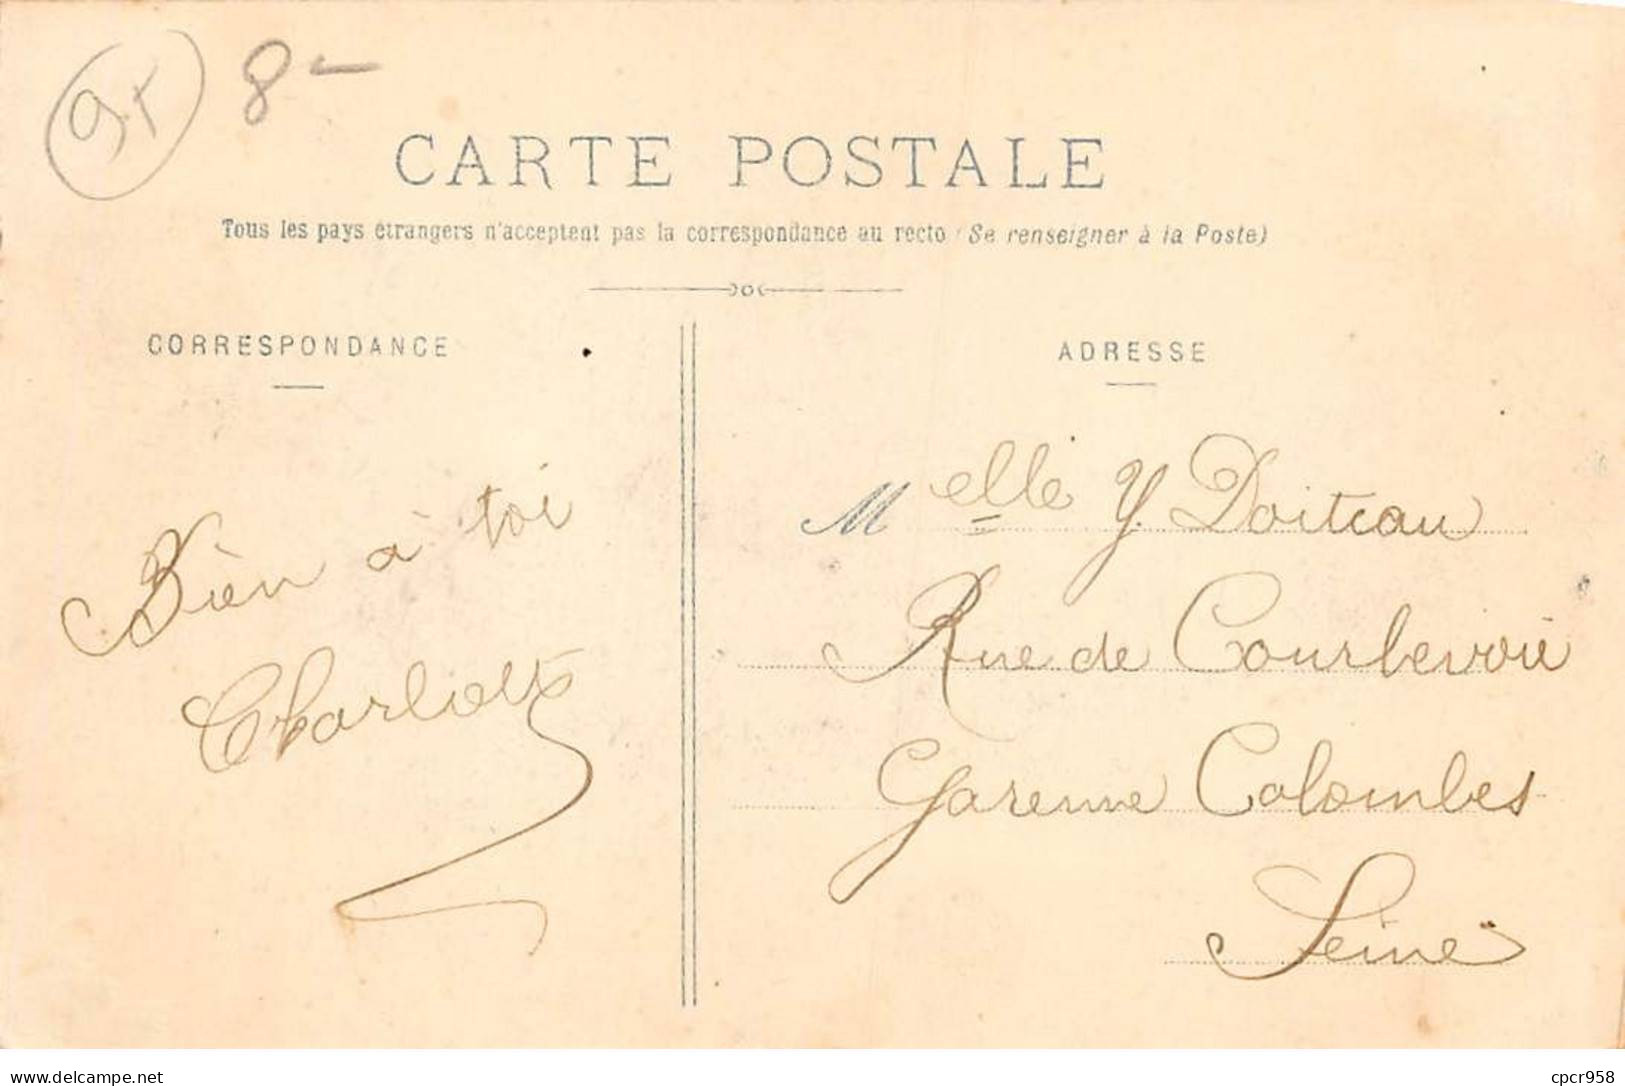 8-
CARTE POSTALE
Tous les pays étrangers n'acceptent pas la correspondance au recto (Se renseigner à la Poste)
CORRESPONDANCE
ADRESSE
Bien à toi
Charlotte
Melle Y. Doiteau
Rue de Courbevoie
Garenne Colombes
Seine
www.delcampe.net
cpcr958